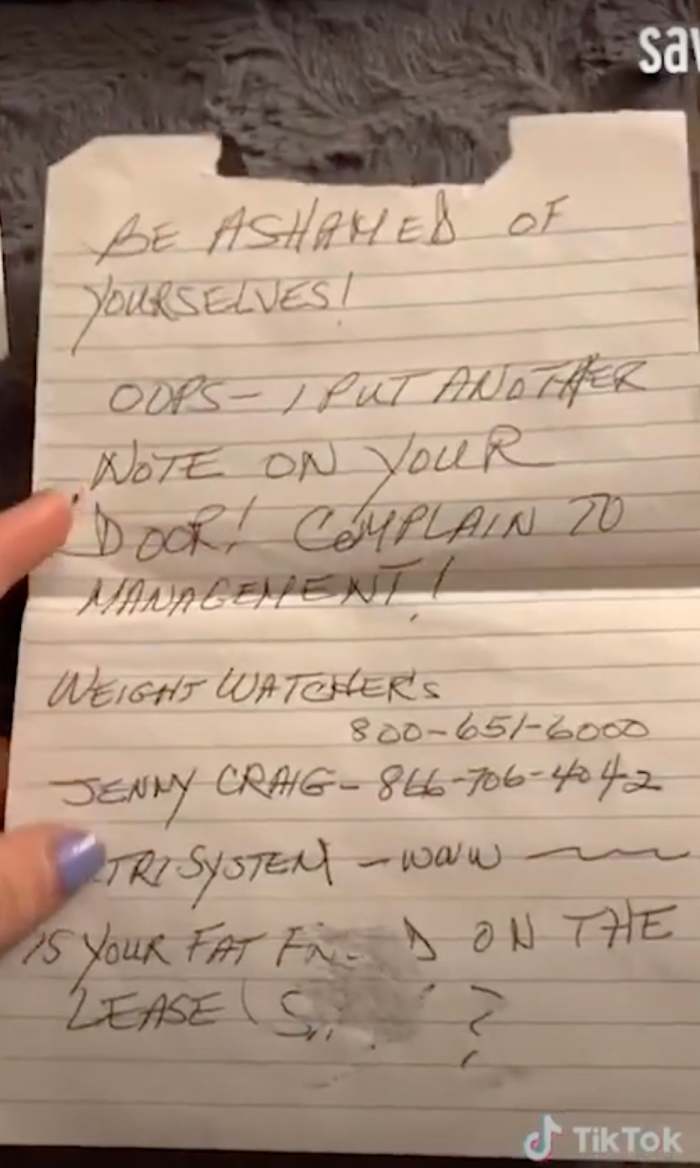 sav
BE ASHAMED OF
YOURSELVES!
OOPS- I PUT ANOTHER
NOTE ON YOUR
DOOR! COMPLAIN TO
MANAGEMENT!
WEIGHT WATCHER'S
800-651-6000
JENNY CRAIG- 866-706-4042
TRISYSTEM - WWW
IS YOUR FAT ON THE
LEASE ?
TikTok